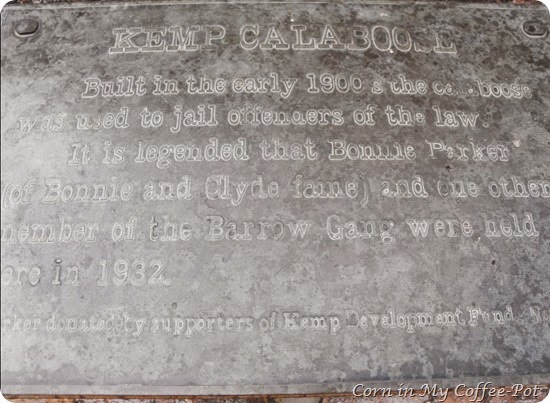 KEMP CALABOOSE
Built in the early 1900's the calaboose
was used to jail offenders of the law.
It is legended that Bonnie Parker
(of Bonnie and Clyde fame) and one other
member of the Barrow Gang were held
ere in 1932.
rker donated by supporters of Kemp Development Fund
Corn in My Coffee-Pot